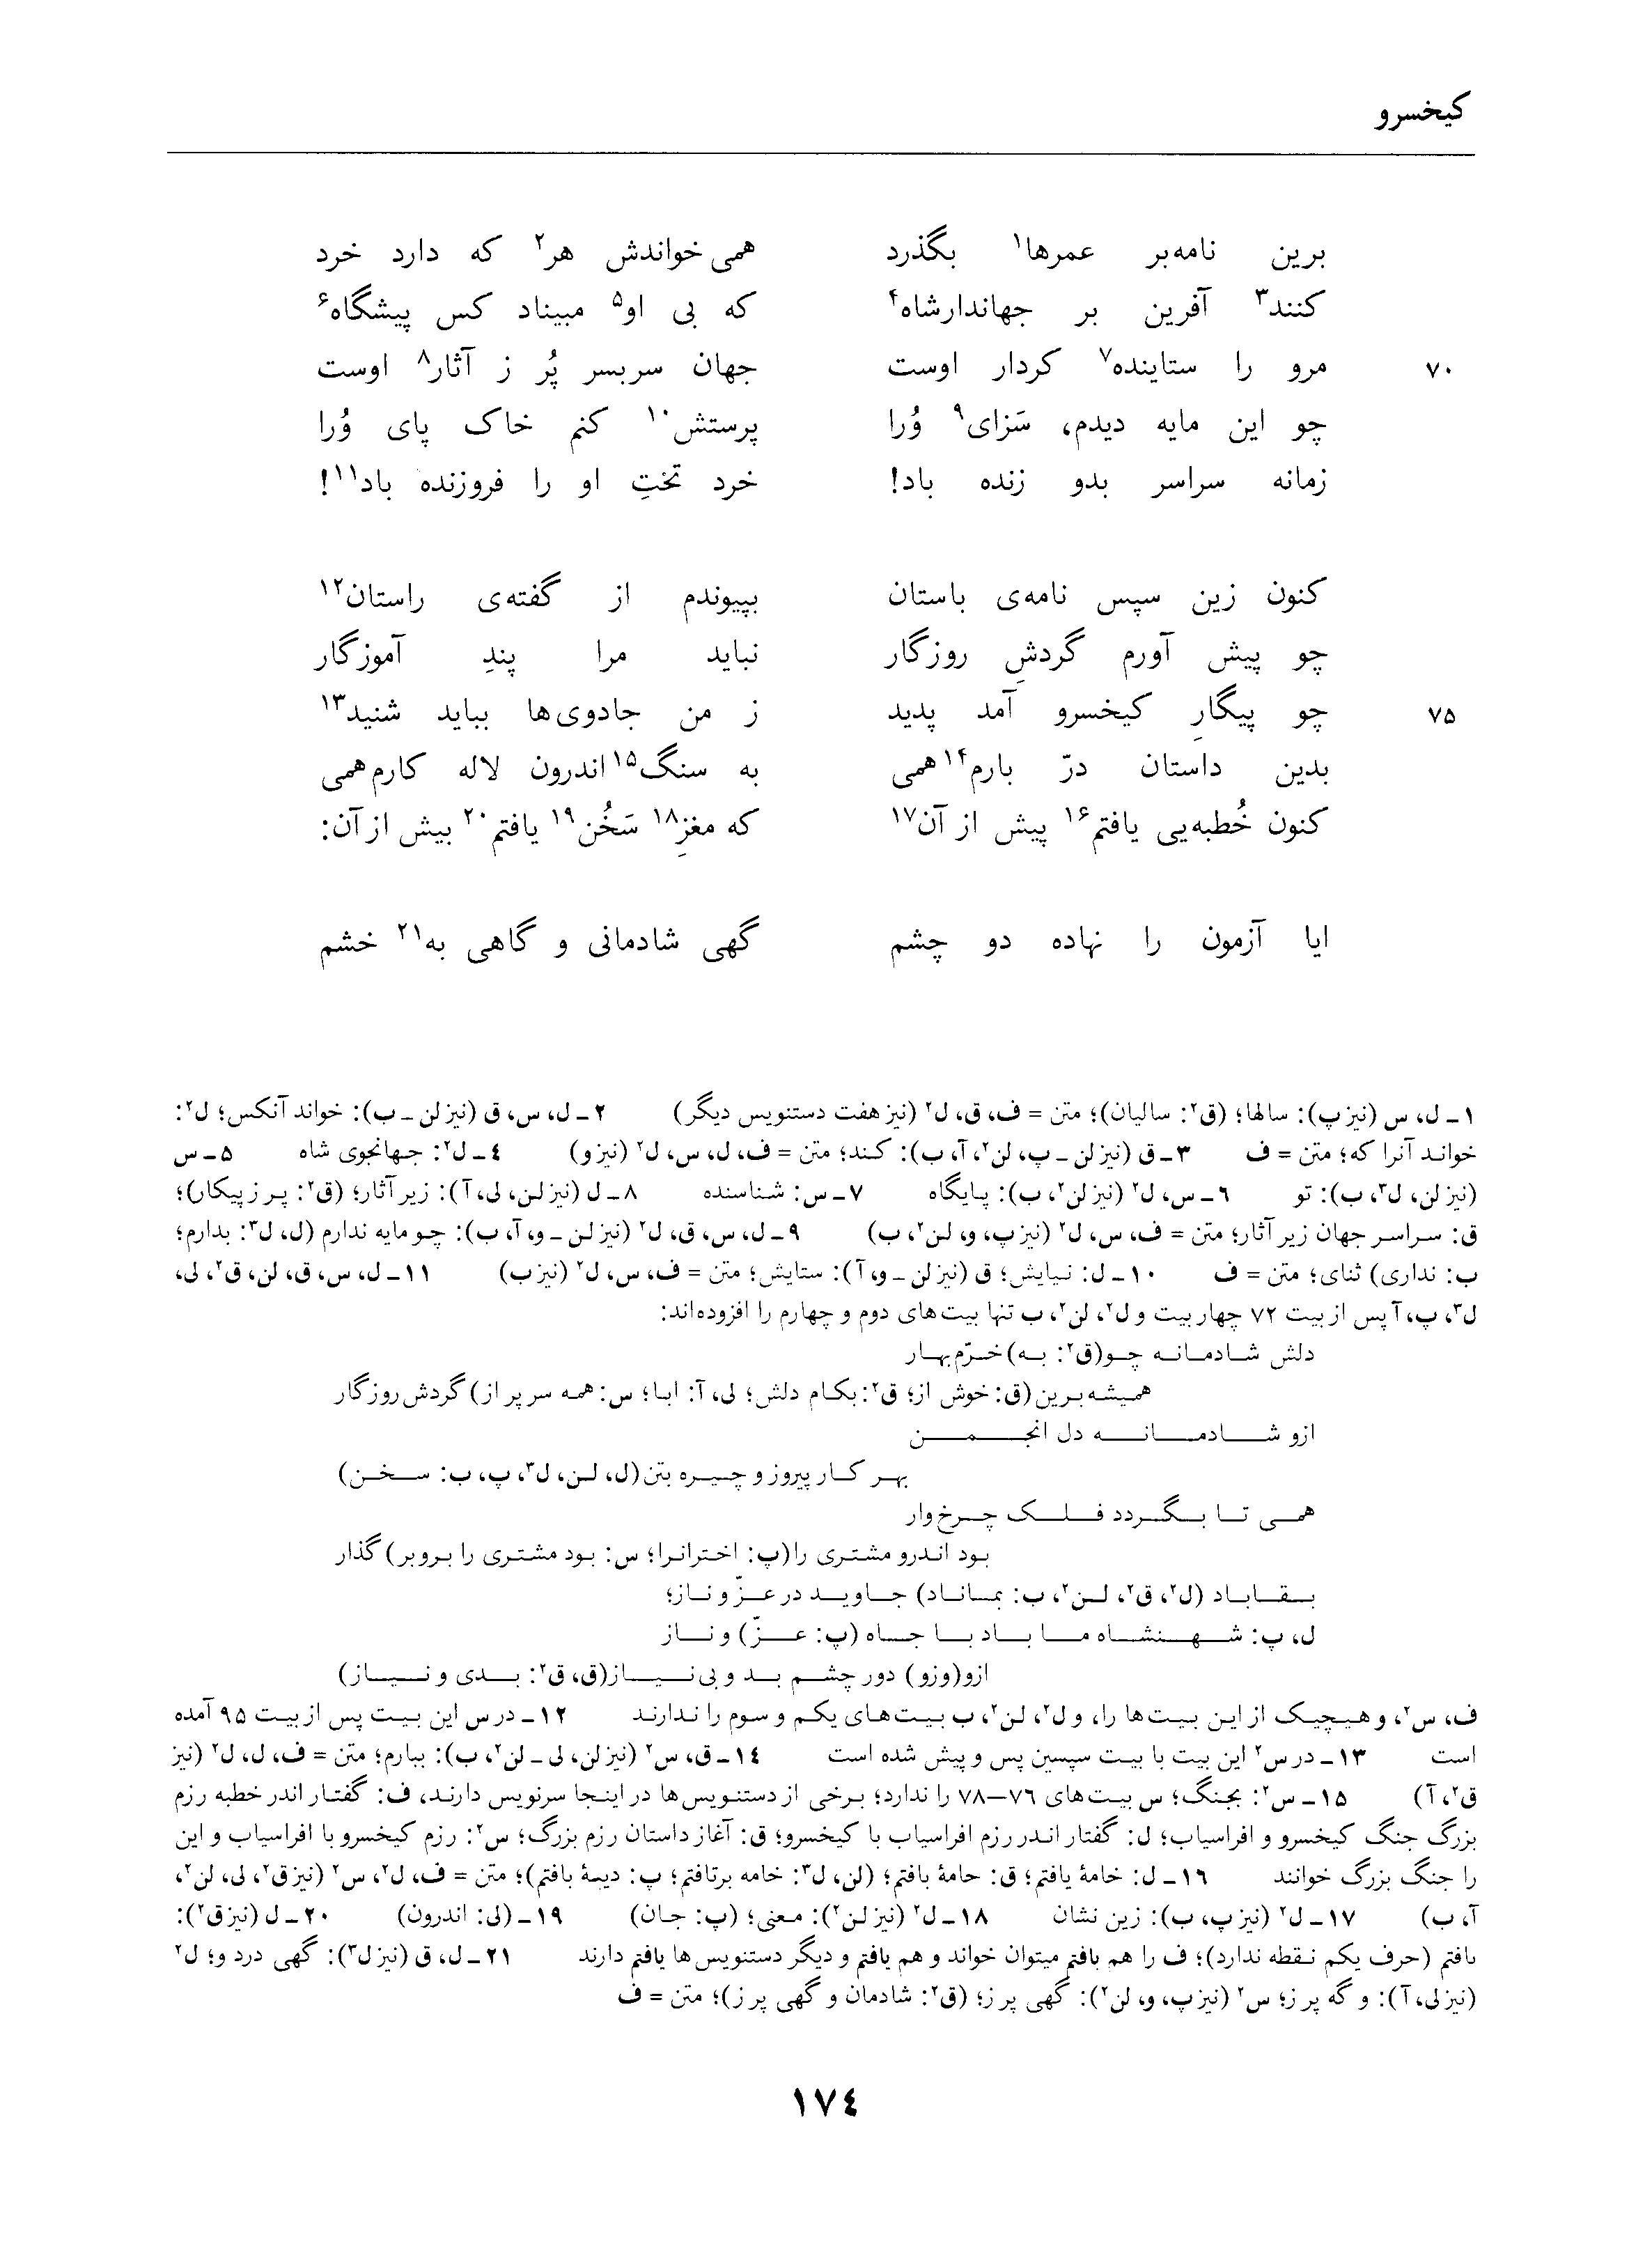 کیخسرو
برین نامه‌بر عمرها۱ بگذرد همی‌خواندش هر۲ که دارد خرد
کنند۳ آفرین بر جهاندارشاه۴ که بی او۵ مبیناد کس پیشگاه۶
۷۰ مرو را ستاینده۷ کردار اوست جهان سربسر پُر ز آثار۸ اوست
چو این مایه دیدم، سَزای۹ وُرا پرستش۱۰ کنم خاک پای وُرا
زمانه سراسر بدو زنده باد! خرد تختِ او را فروزنده باد۱۱!
کنون زین سپس نامه‌ی باستان بپیوندم از گفته‌ی راستان۱۲
چو پیش آورم گردشِ روزگار نباید مرا پندِ آموزگار
۷۵ چو پیگارِ کیخسرو آمد پدید ز من جادوی‌ها بباید شنید۱۳
بدین داستان درّ بارم۱۴ همی به سنگ۱۵ اندرون لاله کارم همی
کنون خُطبه‌یی یافتم۱۶ پیش از آن۱۷ که مغزِ۱۸ سَخُن۱۹ یافتم۲۰ بیش از آن:
ایا آزمون را نهاده دو چشم گهی شادمانی و گاهی به۲۱ خشم
۱ــ ل، س (نیز پ): سالها؛ (ق۲: سالیان)؛ متن = ف، ق، ل۲ (نیز هفت دستنویس دیگر) ۲ــ ل، س، ق (نیز لن ــ ب): خواند آنکس؛ ل۲:
خواند آنرا که؛ متن = ف ۳ــ ق (نیز لن ــ پ، لن۲، آ، ب): کند؛ متن = ف، ل، س، ل۲ (نیز و) ۴ــ ل۲: جهانجوی شاه ۵ــ س
(نیز لن، ل۳، ب): تو ۶ــ س، ل۲ (نیز لن۲، ب): پایگاه ۷ــ س: شناسنده ۸ــ ل (نیز لن، لی، آ): زیر آثار؛ (ق۲: پر ز پیکار)؛
ق: سراسر جهان زیر آثار؛ متن = ف، س، ل۲ (نیز پ، و، لن۲، ب) ۹ــ ل، س، ق، ل۲ (نیز لن ــ و، آ، ب): چو مایه ندارم (ل، ل۳: بدارم؛
ب: نداری) ثنای؛ متن = ف ۱۰ــ ل: نیایش؛ ق (نیز لن ــ و، آ): ستایش؛ متن = ف، س، ل۲ (نیز ب) ۱۱ــ ل، س، ق، لن، ق۲، لی،
ل۳، پ، آ پس از بیت ۷۲ چهار بیت و ل۲، لن۲، ب تنها بیت‌های دوم و چهارم را افزوده‌اند:
دلش شادمانه چو (ق۲: به) خرّم بهار
همیشه برین (ق: خوش از؛ ق۲: بکام دلش؛ لی، آ: ابا؛ س: همه سر پر از) گردش روزگار
ازو شادمانه دل انجمن
بهر کار پیروز و چیره بتن (ل، لن، ل۳، پ، ب: سخن)
همی تا بگردد فلک چرخ‌وار
بود اندرو مشتری را (پ: اخترانرا؛ س: بود مشتری را بروبر) گذار
بقاباد (ل۲، ق۲، لن۲، ب: بماناد) جاوید در عزّ و ناز؛
ل، پ: شهنشاه ما باد با جاه (پ: عزّ) و ناز
ازو (وزو) دور چشم بد و بی‌نیاز (ق، ق۲: بدی و نیاز)
ف، س۲، و هیچیک از این بیت‌ها را، و ل۲، لن۲، ب بیت‌های یکم و سوم را ندارند ۱۲ــ در س این بیت پس از بیت ۹۵ آمده
است ۱۳ــ در س۲ این بیت با بیت سپسین پس و پیش شده است ۱۴ــ ق، س۲ (نیز لن، لی ــ لن۲، ب): ببارم؛ متن = ف، ل، ل۲ (نیز
ق۲، آ) ۱۵ــ س۲: بجنگ؛ س بیت‌های ۷۶ــ۷۸ را ندارد؛ برخی از دستنویس‌ها در اینجا سرنویس دارند، ف: گفتار اندر خطبه رزم
بزرگ جنگ کیخسرو و افراسیاب؛ ل: گفتار اندر رزم افراسیاب با کیخسرو؛ ق: آغاز داستان رزم بزرگ؛ س۲: رزم کیخسرو با افراسیاب و این
را جنگ بزرگ خوانند ۱۶ــ ل: خامهٔ یافتم؛ ق: حامهٔ بافتم؛ (لن، ل۳: خامه برتافتم؛ پ: دیبهٔ بافتم)؛ متن = ف، ل۲، س۲ (نیز ق۲، لی، لن۲،
آ، ب) ۱۷ــ ل۲ (نیز پ، ب): زین نشان ۱۸ــ ل۲ (نیز لن۲): معنی؛ (پ: جان) ۱۹ــ (لی: اندرون) ۲۰ــ ل (نیز ق۲):
ٮافتم (حرف یکم نقطه ندارد)؛ ف را هم بافتم میتوان خواند و هم یافتم و دیگر دستنویس‌ها یافتم دارند ۲۱ــ ل، ق (نیز ل۳): گهی درد و؛ ل۲
(نیز لی، آ): و گه پر ز؛ س۲ (نیز پ، و، لن۲): گهی پر ز؛ (ق۲: شادمان و گهی پر ز)؛ متن = ف
۱۷٤